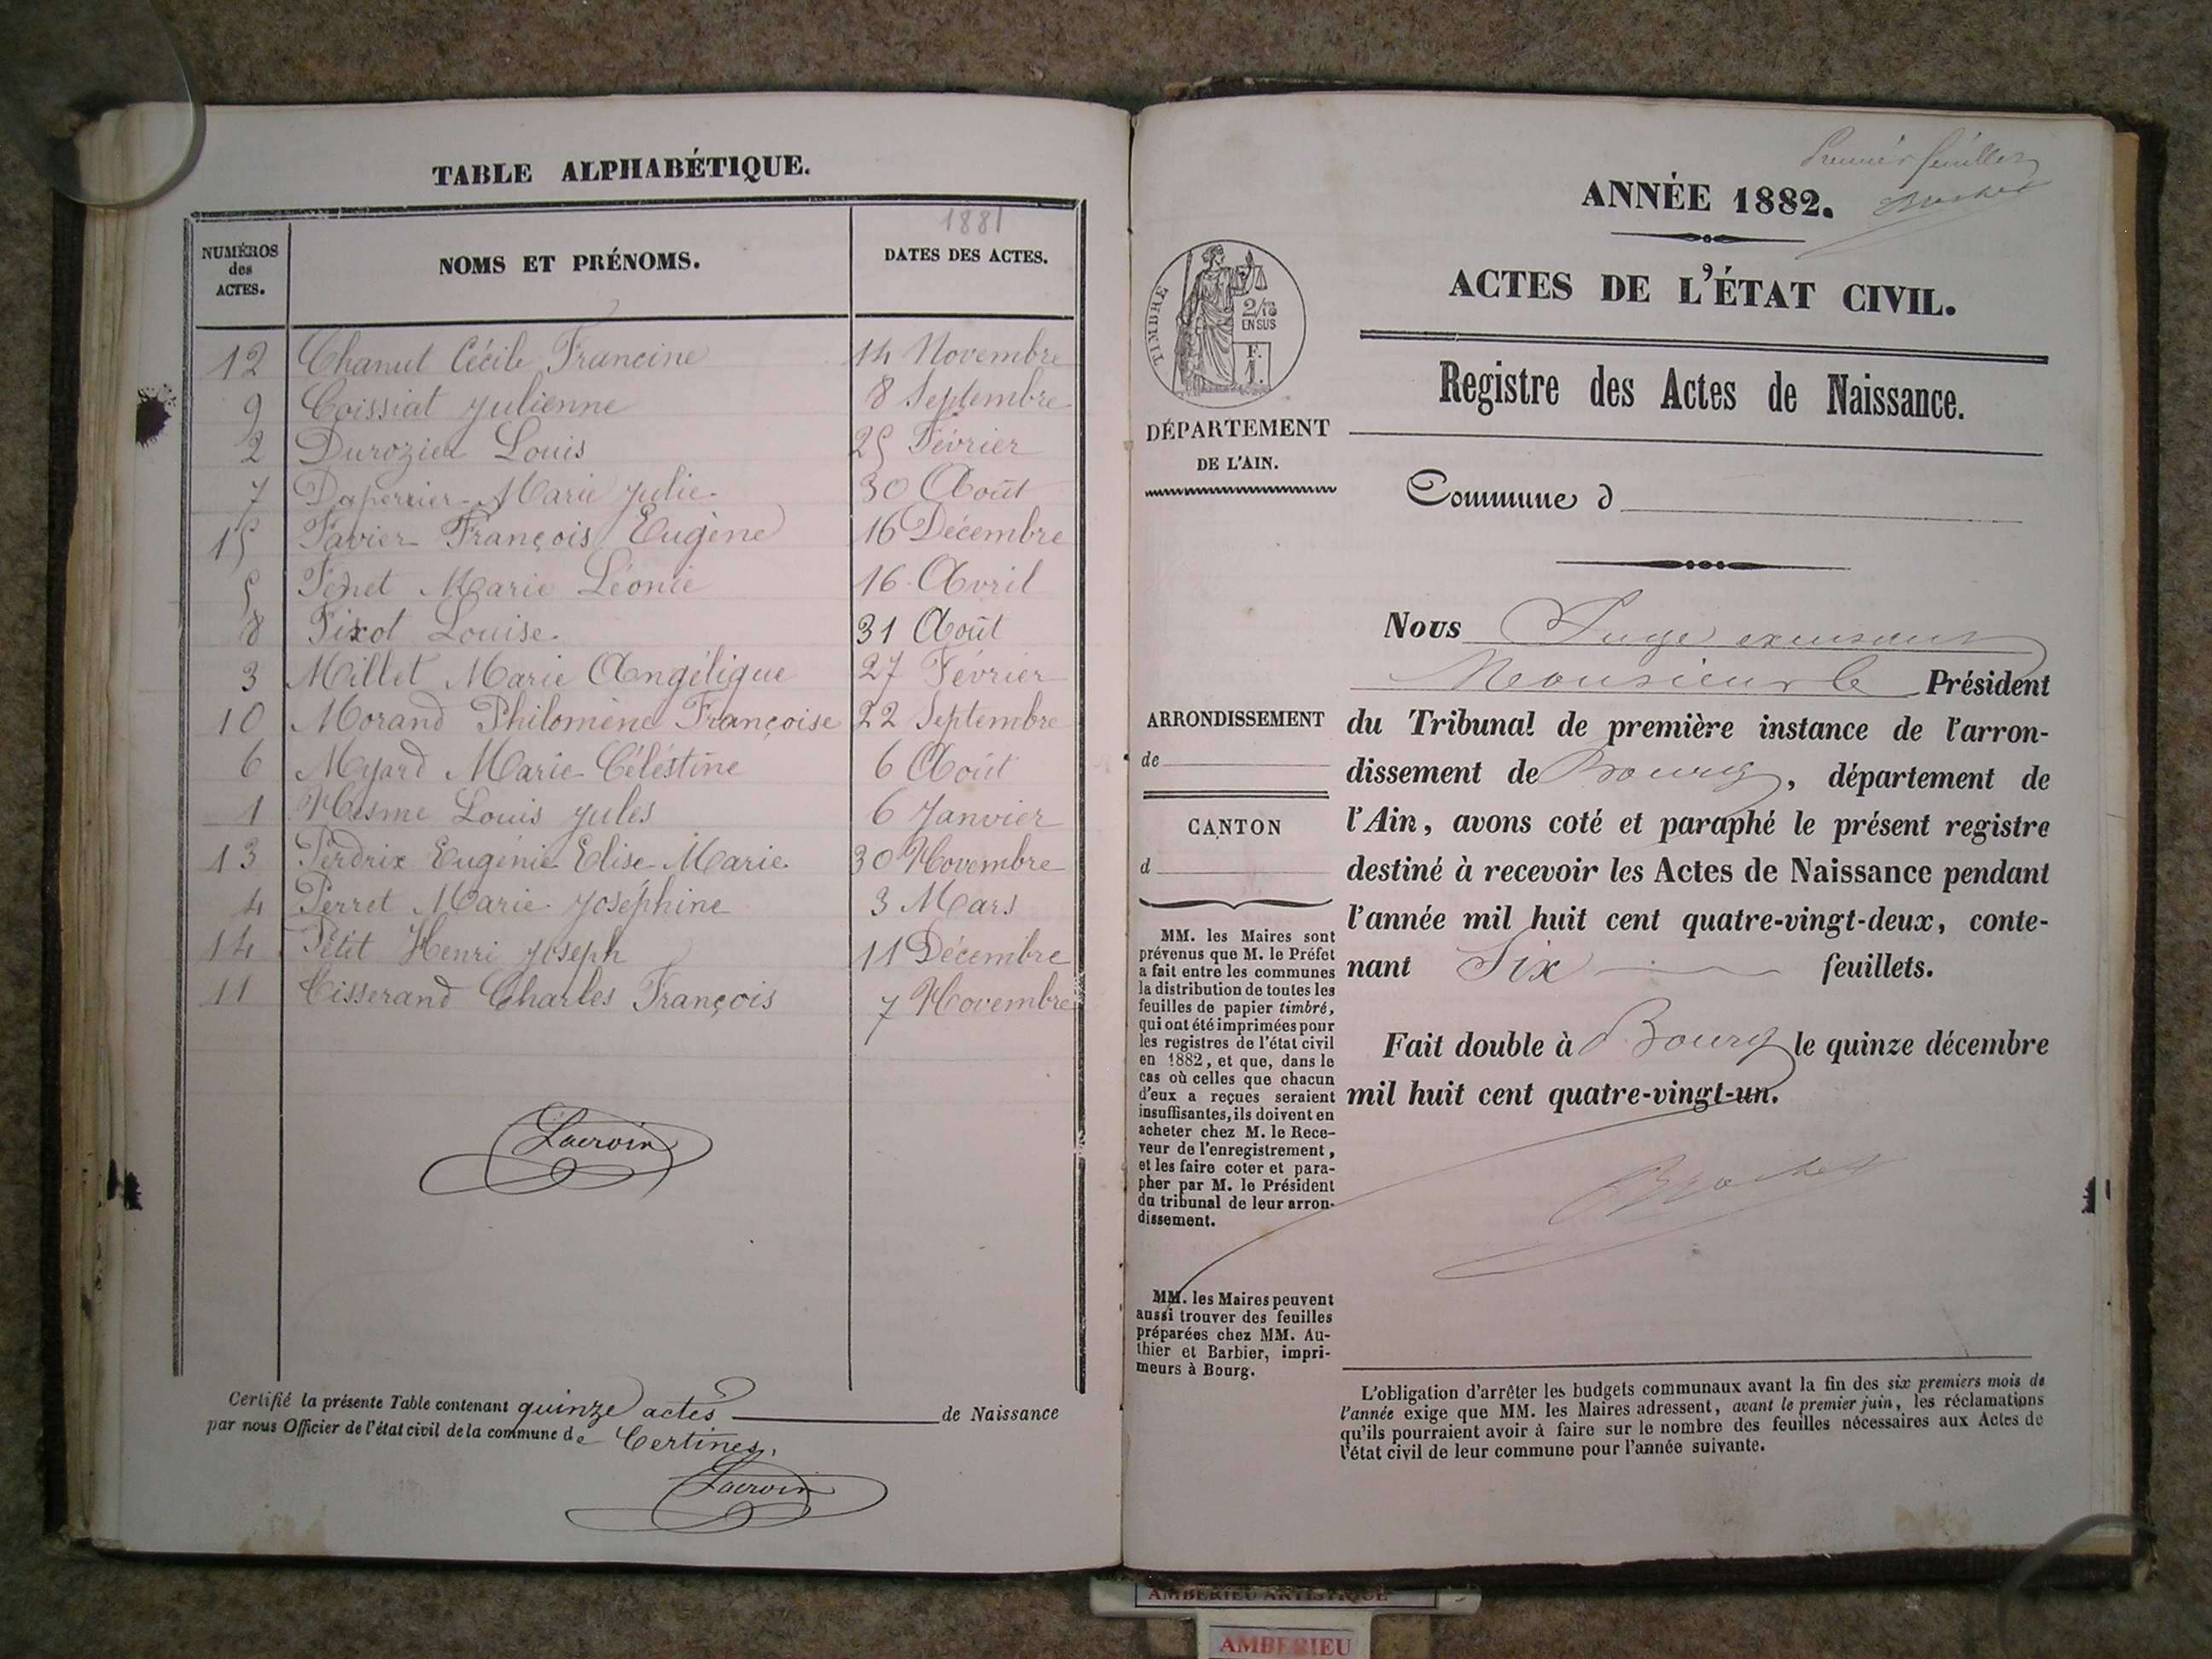 TABLE ALPHABÉTIQUE.
1881
NUMÉROS des ACTES. NOMS ET PRÉNOMS. DATES DES ACTES.
12 Chanut Cécile Francine 14 Novembre
9 Coissiat Julienne 8 Septembre
2 Durozier Louis 25 Février
7 Duperrier Marie Julie 30 Août
15 Favier François Eugène 16 Décembre
5 Fenet Marie Léonie 16 Avril
8 Fixot Louise 31 Août
3 Millet Marie Angélique 27 Février
10 Morand Philomène Françoise 22 Septembre
6 Myard Marie Céléstine 6 Août
1 Nesme Louis Jules 6 Janvier
13 Perdrix Eugénie Elise Marie 30 Novembre
4 Perret Marie Joséphine 3 Mars
14 Petit Henri Joseph 11 Décembre
11 Tisserand Charles François 7 Novembre
Lacroix
Certifié la présente Table contenant quinze actes de Naissance
par nous Officier de l'état civil de la commune de Certines,
Lacroix
Premier feuillet
Brochet
ANNÉE 1882.
ACTES DE L'ÉTAT CIVIL.
Registre des Actes de Naissance.
TIMBRE
2/10
EN SUS
F.
1.
DÉPARTEMENT
DE L'AIN.
Commune d
ARRONDISSEMENT
de
CANTON
d
MM. les Maires sont
prévenus que M. le Préfet
a fait entre les communes
la distribution de toutes les
feuilles de papier timbré,
qui ont été imprimées pour
les registres de l'état civil
en 1882, et que, dans le
cas où celles que chacun
d'eux a reçues seraient
insuffisantes, ils doivent en
acheter chez M. le Rece-
veur de l'enregistrement,
et les faire coter et para-
pher par M. le Président
du tribunal de leur arron-
dissement.
MM. les Maires peuvent
aussi trouver des feuilles
préparées chez MM. Au-
thier et Barbier, impri-
meurs à Bourg.
Nous Juge
Monsieur le Président
du Tribunal de première instance de l'arron-
dissement de Bourg, département de
l'Ain, avons coté et paraphé le présent registre
destiné à recevoir les Actes de Naissance pendant
l'année mil huit cent quatre-vingt-deux, conte-
nant Six feuillets.
Fait double à Bourg le quinze décembre
mil huit cent quatre-vingt-un.
Brochet
L'obligation d'arrêter les budgets communaux avant la fin des six premiers mois de
l'année exige que MM. les Maires adressent, avant le premier juin, les réclamations
qu'ils pourraient avoir à faire sur le nombre des feuilles nécessaires aux Actes de
l'état civil de leur commune pour l'année suivante.
AMBERIEU ARTISTIQUE
AMBERIEU